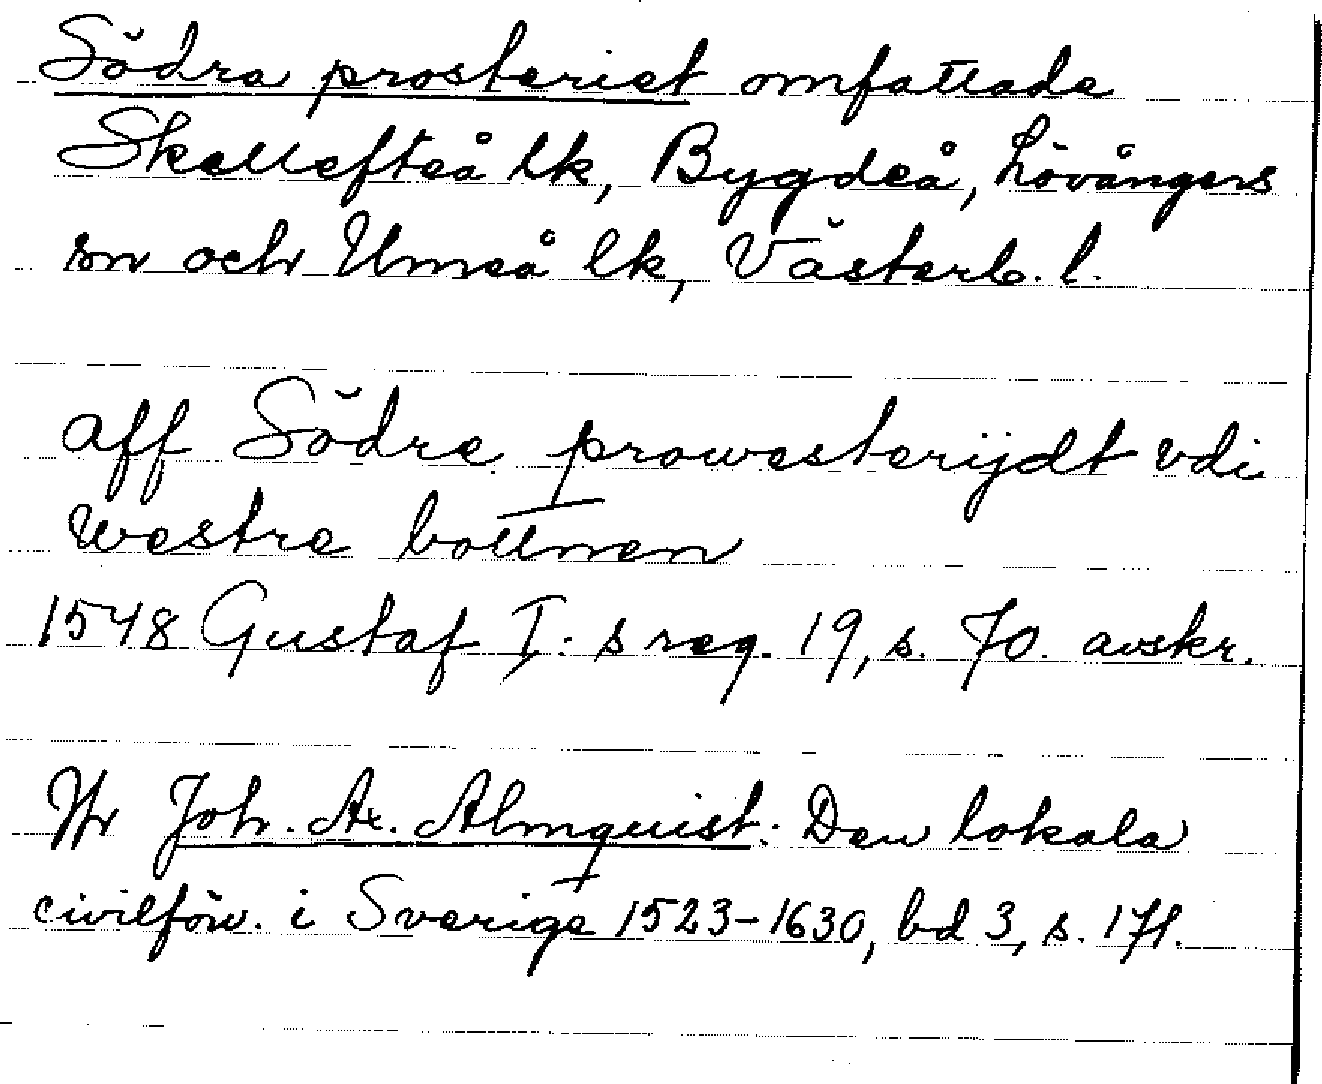 Södra prosteriet omfattade
Skellefteå lk, Bygdeå, Lövångers
sn och Umeå lk, Västerb. l.
aff Södre prowesterijdt vdi
westre bottnen
1548 Gustaf I:s reg. 19, s. 70. avskr.
Joh. Ax. Almquist: Den lokala
civilförv. i Sverige 1523-1630, bd 3, s. 171.